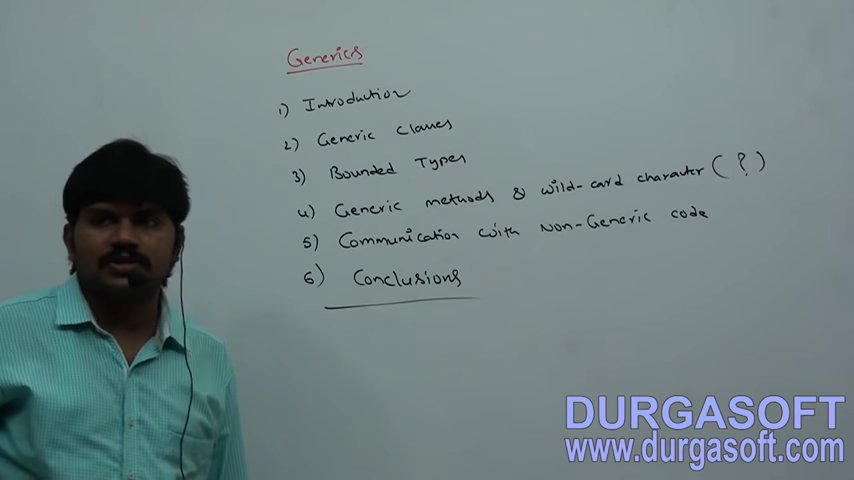 Generics
1) Introduction
2) Generic Classes
3) Bounded Types
4) Generic methods & wild-card character (?)
5) Communication with Non-Generic code
6) Conclusions
DURGASOFT
www.durgasoft.com